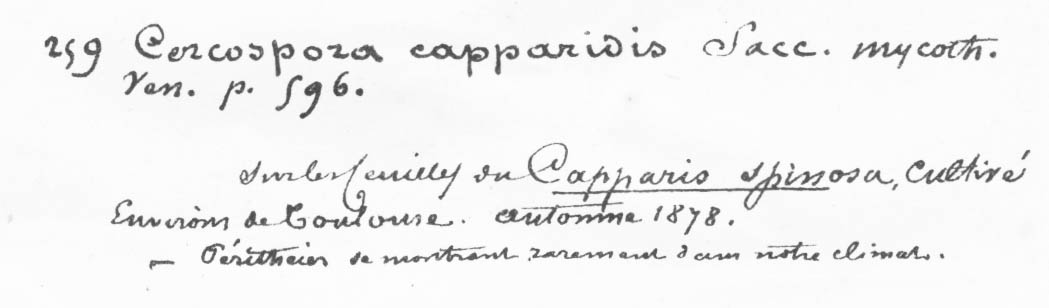 259 Cercospora capparidis Sacc. mycoth.
Ven. p. 596.
Sur les feuilles du Capparis spinosa, cultivé
Environs de Toulouse. automne 1878.
— Périthecies se montrant rarement dans notre climat.